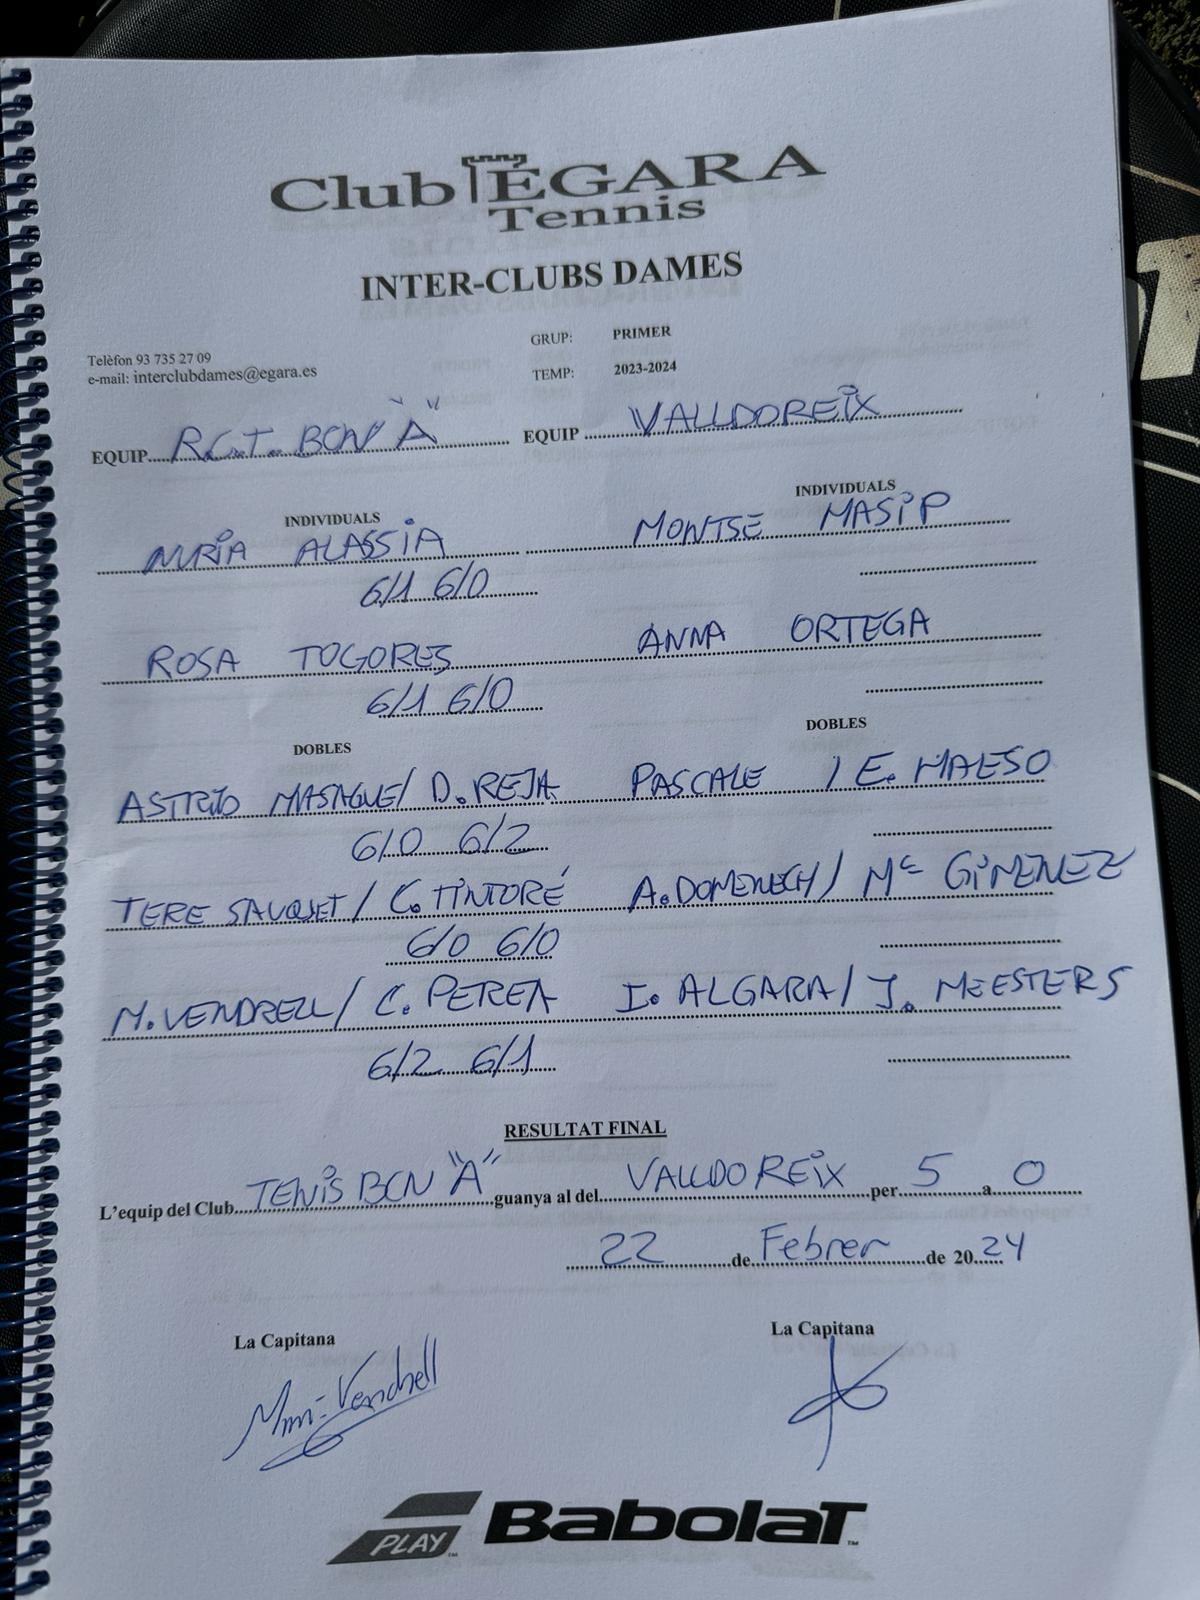 Club ÈGARA
Tennis
INTER-CLUBS DAMES
GRUP: PRIMER
Telèfon 93 735 27 09
e-mail: interclubdames@egara.es
TEMP: 2023-2024
EQUIP R.C.T. BCN "A" EQUIP VALLDOREIX
INDIVIDUALS INDIVIDUALS
NURIA ALASSIA MONTSE MASIP
6/1 6/0
ROSA TOGORES ANNA ORTEGA
6/1 6/0
DOBLES DOBLES
ASTRID MASAGUE/ D. REJA PASCALE / E. MAESO
6/0 6/2
TERE SAUQUET / C. TINTORÉ A. DOMENECH / Mc GIMENEZ
6/0 6/0
M. VENDRELL/ C. PEREA I. ALGARA/ J. MEESTERS
6/2 6/1
RESULTAT FINAL
L'equip del Club TENIS BCN "A" guanya al del VALLDOREIX per 5 a 0
22 de Febrer de 2024
La Capitana La Capitana
Vendrell
PLAY BabolaT